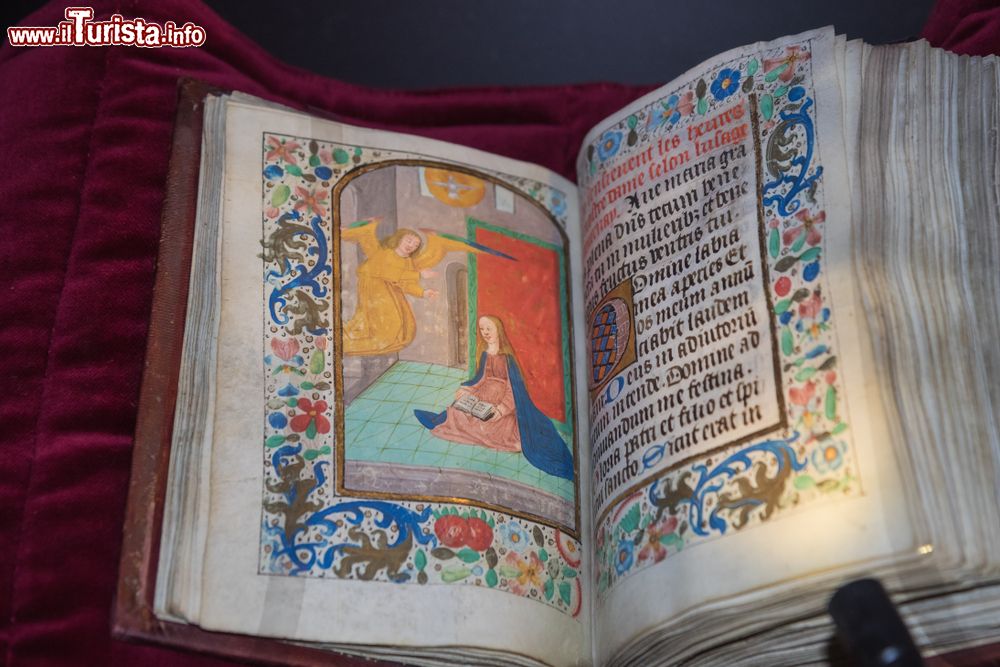 www.ilTurista.info
les heures
dame selon lusage
Aue maria gra
plena dns tecum bene
in mulieribz et bene
fructus ventris tui.
Domine labia
mea aperies Et
os meum annū
ciabit laudem
Deus in adiutoriū
meum intende. Domine ad
iuuandum me festina.
Gloria patri et filio et spi
sancto Sicut erat in